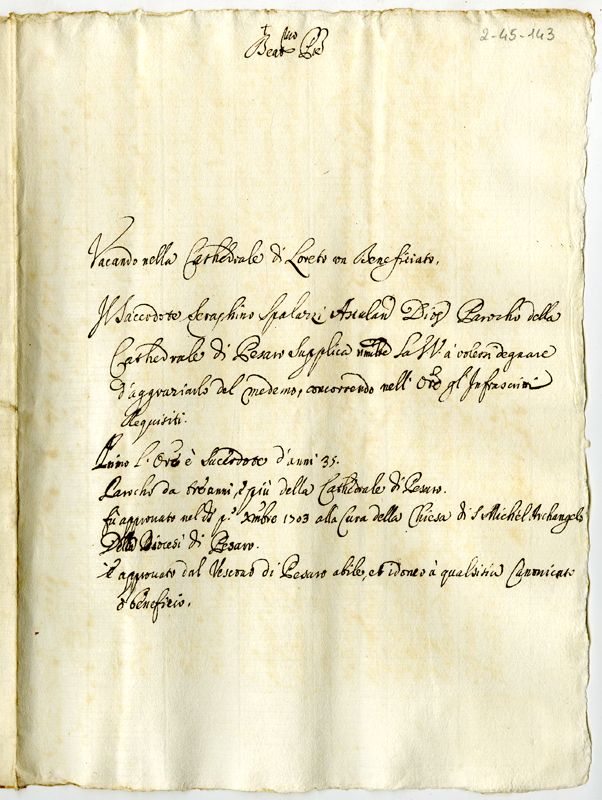 2-45-143
Beat.mo P.re
Vacando nella Cathedrale di Loreto un Beneficiato,
Il Sacerdote Seraphino Spalazzi Asculan Dioc Parocho della
Cathedrale di Pesaro Supplica la SV. à volersi degnare
d'aggraziarlo del medemo, concorrendo nell' Ore gl' Infrascritti
Requisiti.
Primo l' Ore è Sacerdote d'anni 35.
Parocho da tre anni, e più della Cathedrale di Pesaro.
Fù approvato nel dì p.o Xmbre 1703 alla Cura della Chiesa di S. Michel' Archangelo
Della Diocesi di Pesaro.
È approvato dal Vescovo di Pesaro abile, et idoneo à qualsisia Canonicato
ò beneficio.